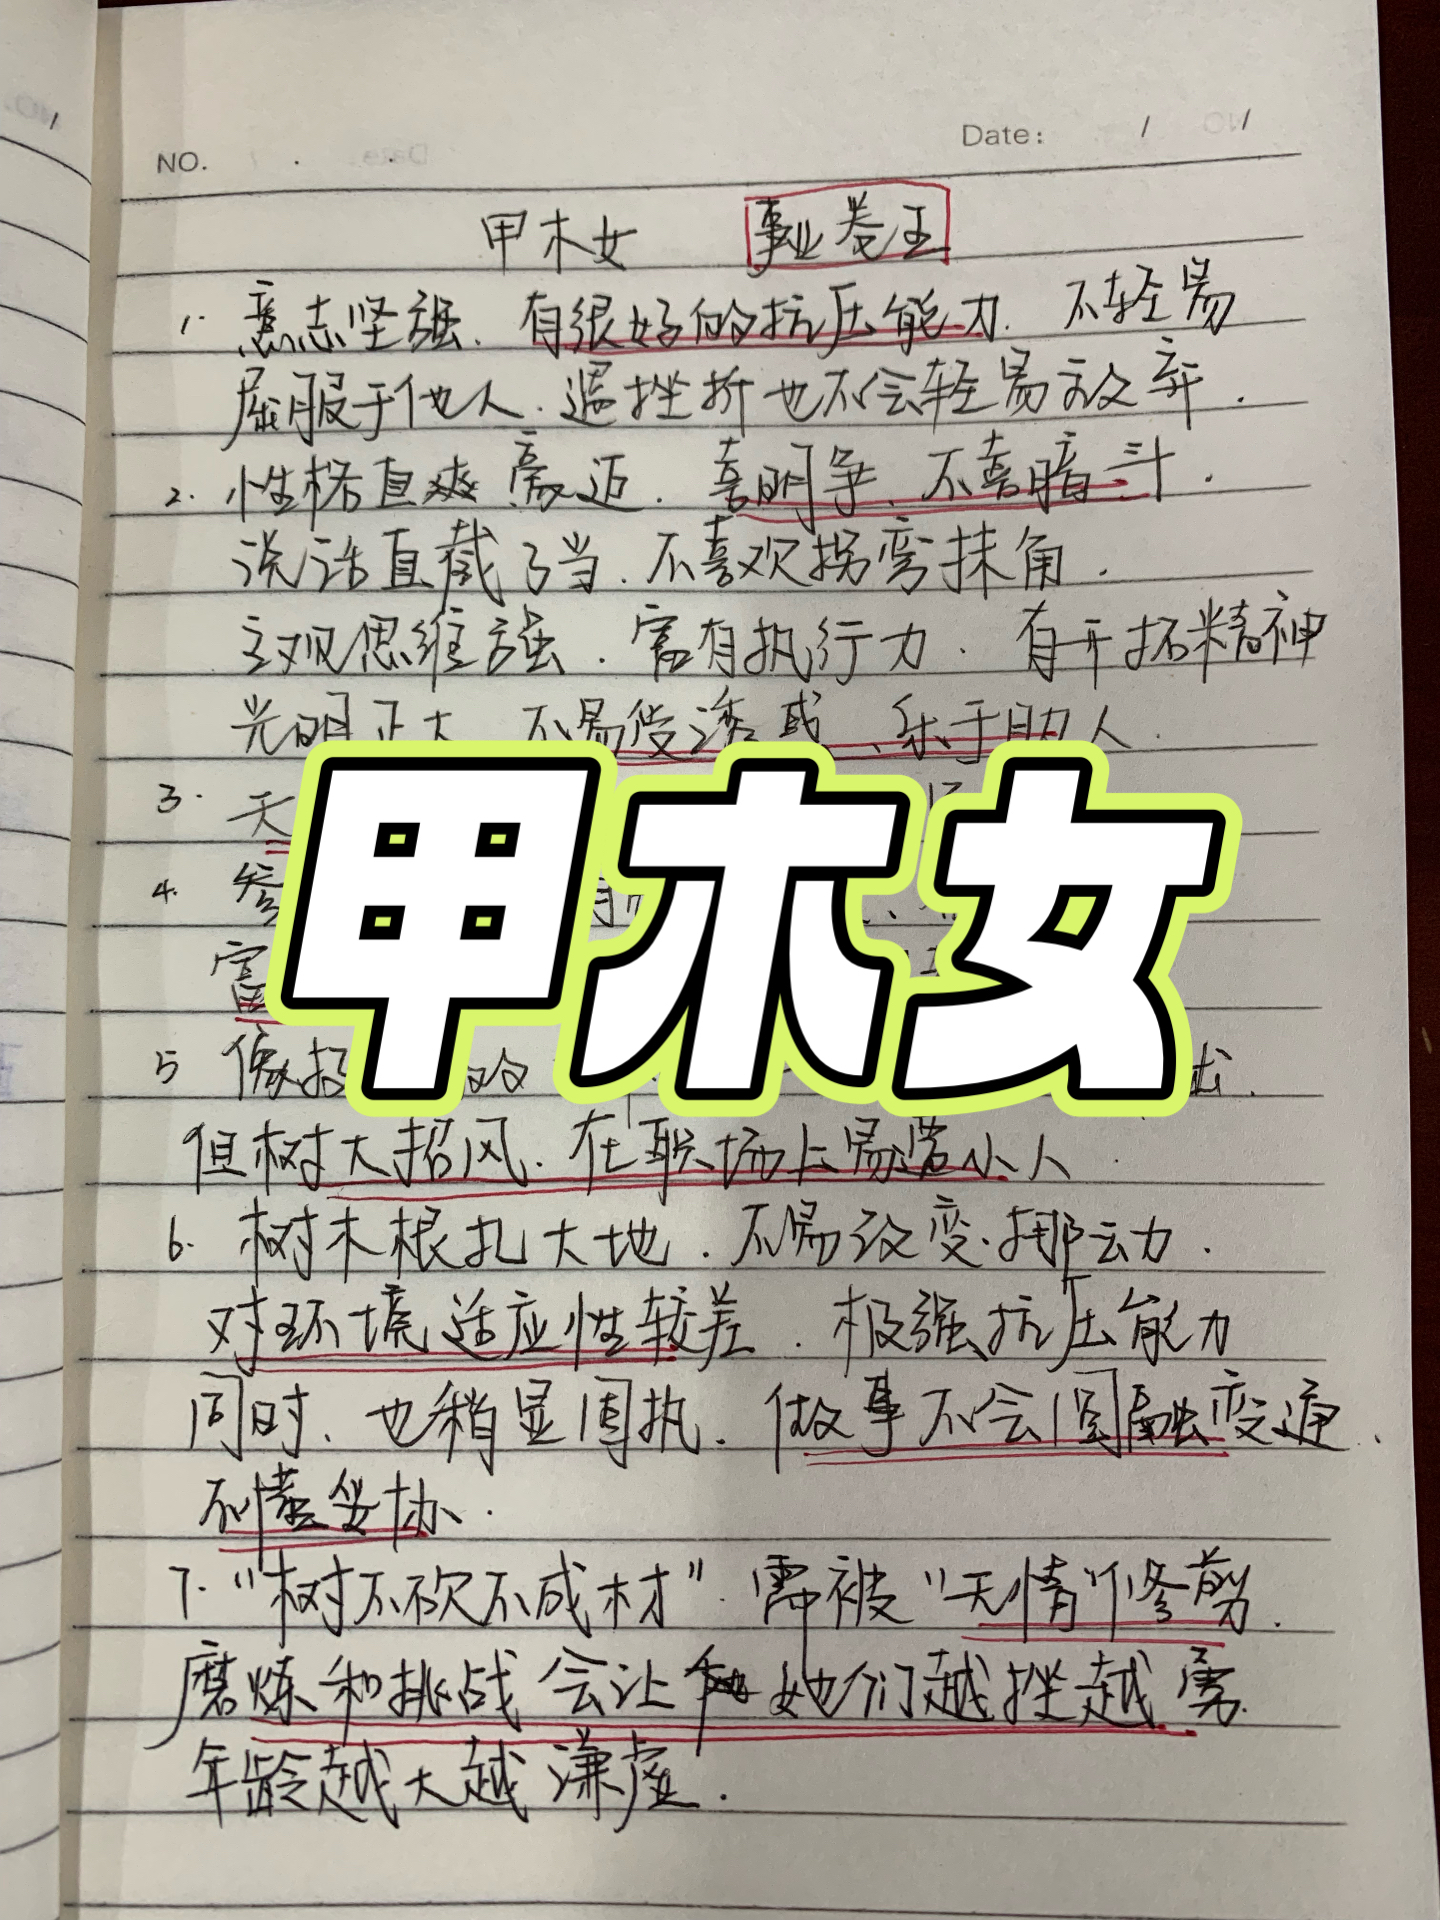 NO.
Date:
甲木女 事业卷王
1. 意志坚强、有很好的抗压能力. 不轻易
屈服于他人. 遇挫折也不会轻易放弃.
2. 性格直爽豪迈. 喜明争、不喜暗斗.
说话直截了当. 不喜欢拐弯抹角.
主观思维强. 富有执行力. 有开拓精神
光明正大 不易受诱惑、乐于助人.
3. 天
甲木女
4.
富
5 像
但树大招风. 在职场上易遭小人
6. 树木根扎大地. 不易改变.挪动力.
对环境适应性较差. 极强抗压能力
同时、也稍显固执. 做事不会圆融变通.
不懂妥协.
7. "树不砍不成材". 需被"无情"修剪.
磨炼和挑战会让她们越挫越勇.
年龄越大越谦虚.